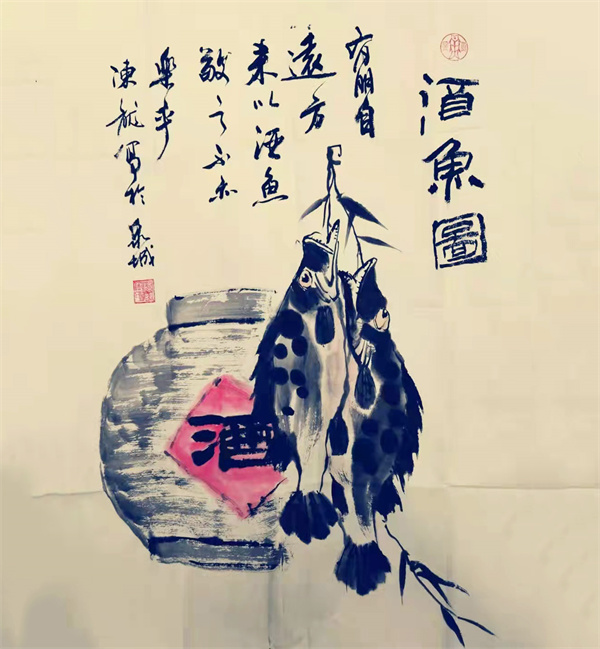 酒魚圖
有朋自
遠方
来以酒魚
敬之不亦
樂乎
龍寫於泉城
酒